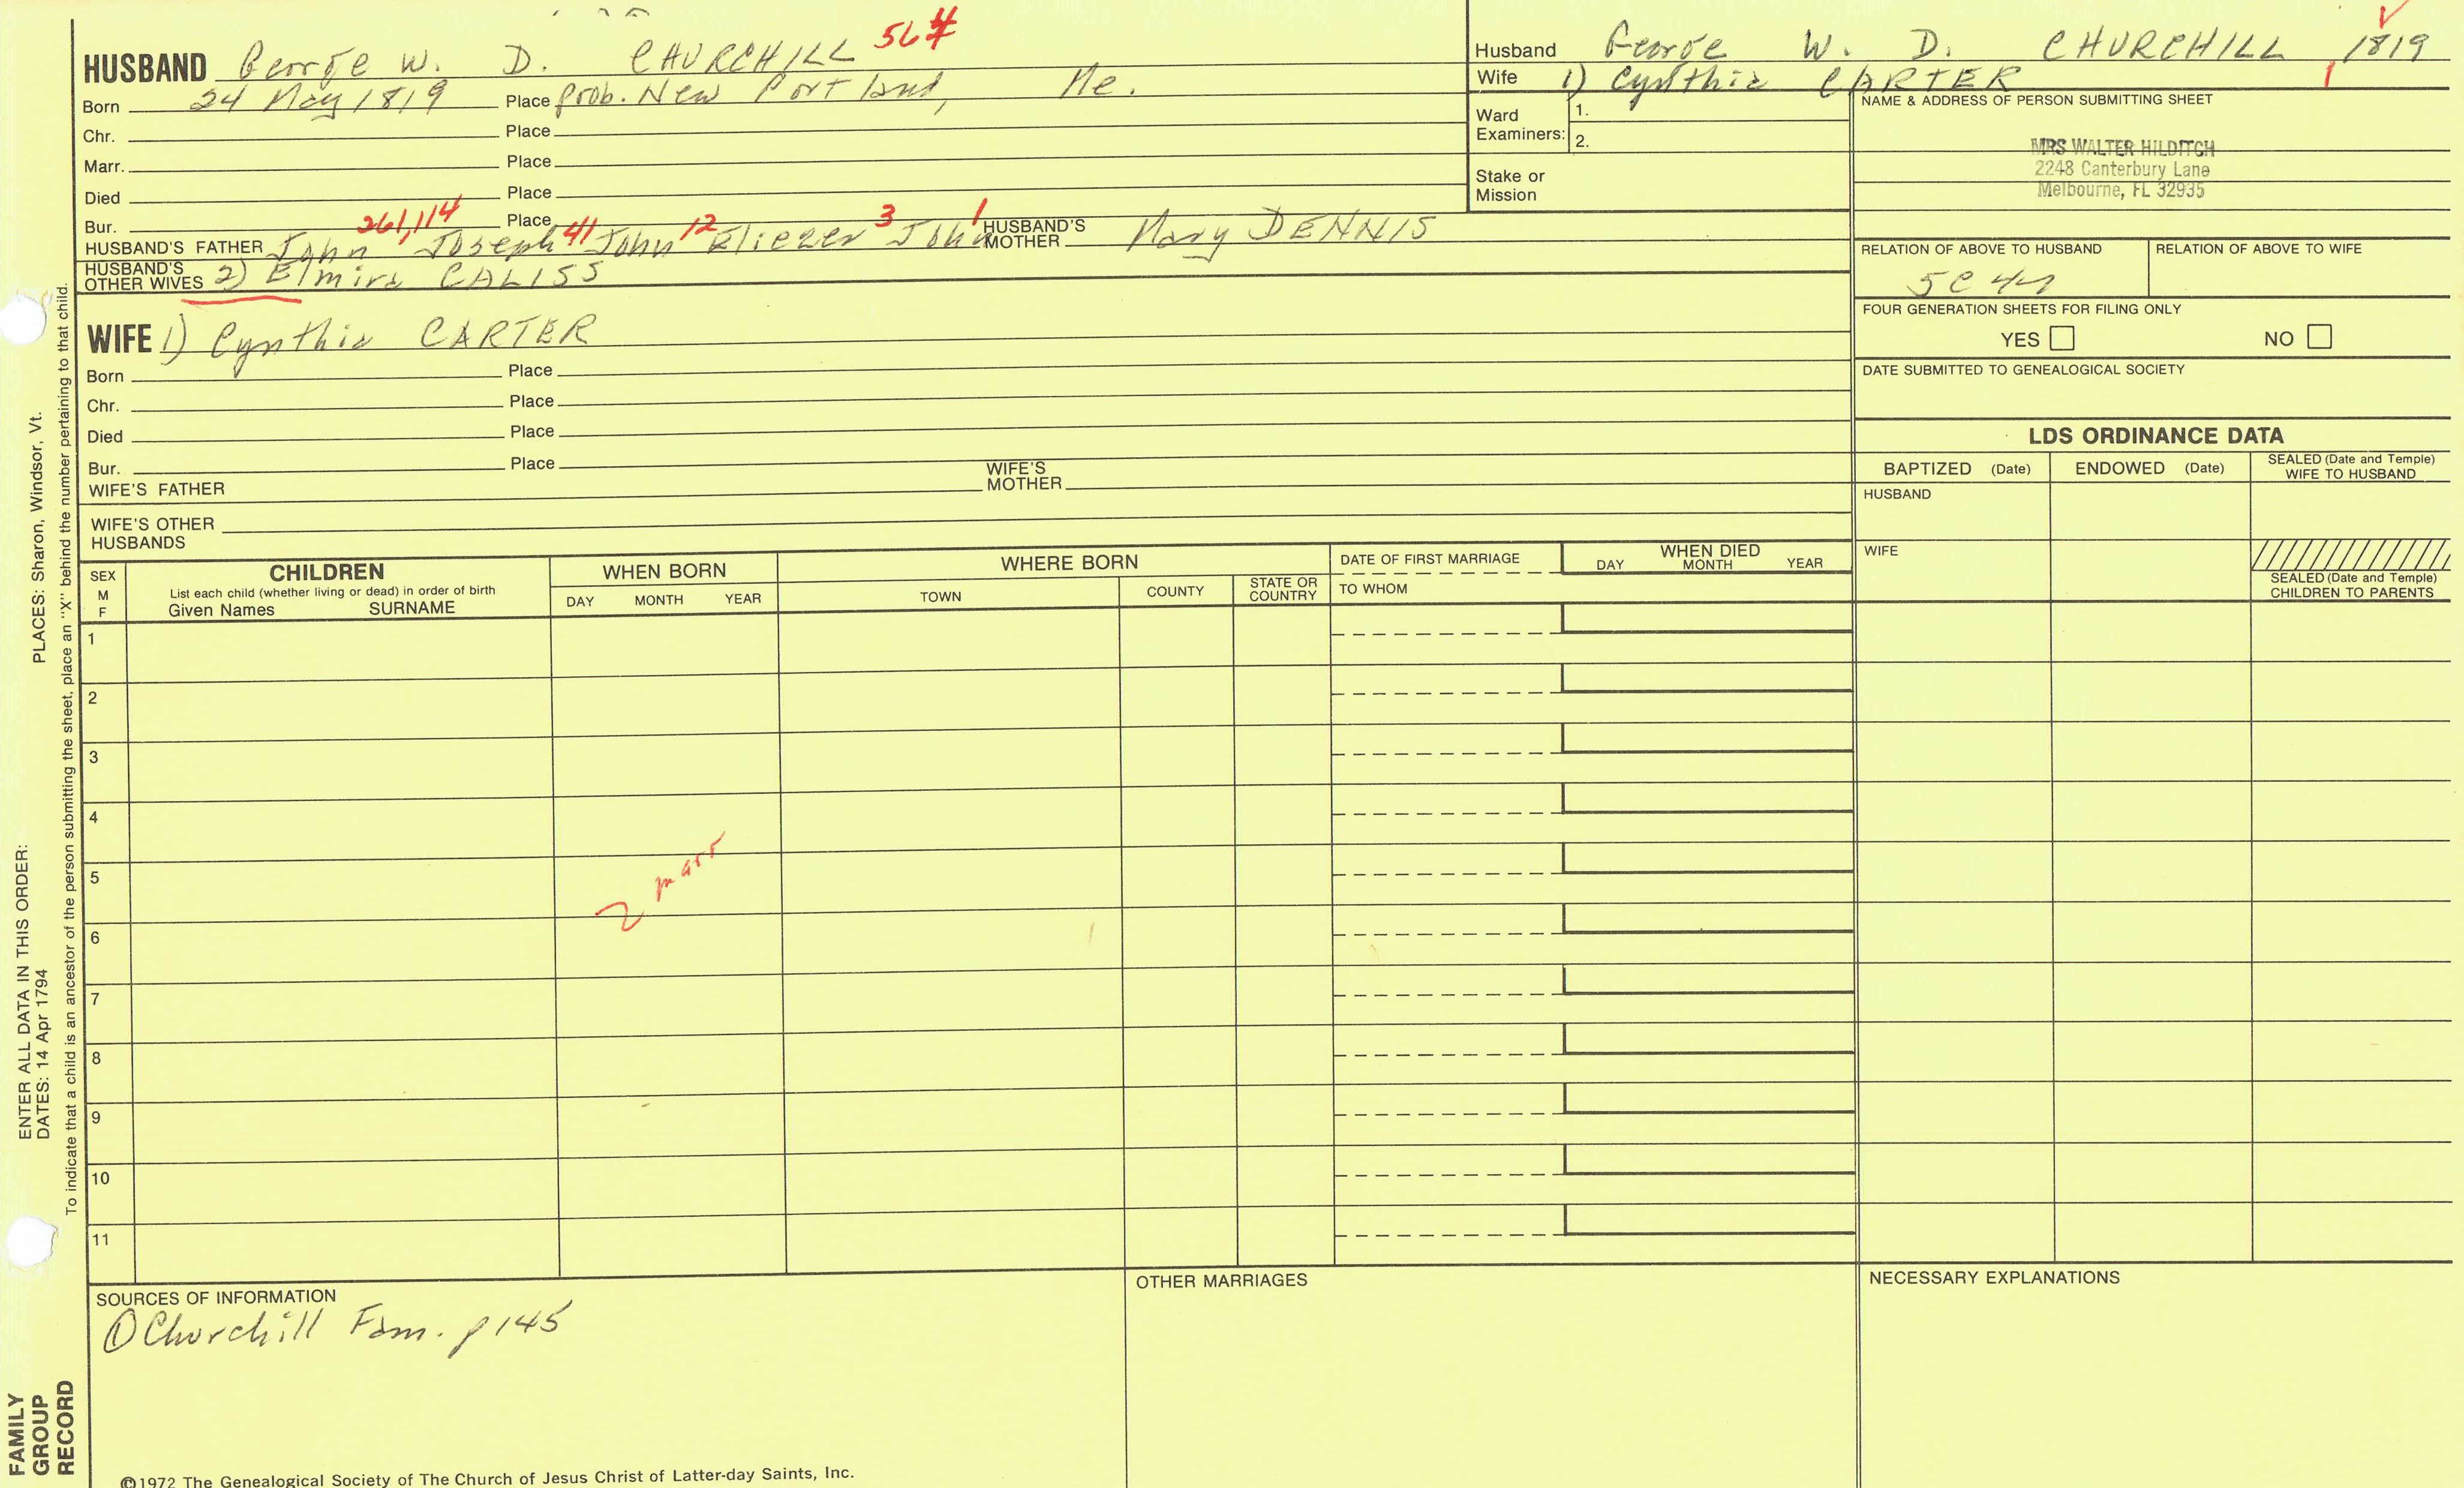 HUSBAND George W. D. CHURCHILL 564
Born 24 May 1819 Place prob. New Portland, Me.
Chr. Place
Marr. Place
Died Place
Bur. Place
261,114 41 12 3 1
HUSBAND'S FATHER John Joseph John Eliezer John HUSBAND'S MOTHER Mary DENNIS
HUSBAND'S OTHER WIVES 2) Elmira CALISS
WIFE 1) Cynthia CARTER
Born Place
Chr. Place
Died Place
Bur. Place
WIFE'S FATHER WIFE'S MOTHER
WIFE'S OTHER HUSBANDS
Husband George W. D. CHURCHILL 1819
Wife 1) Cynthia CARTER 1
Ward Examiners: 1.
2.
Stake or Mission
NAME & ADDRESS OF PERSON SUBMITTING SHEET
MRS WALTER HILDITCH
2248 Canterbury Lane
Melbourne, FL 32935
RELATION OF ABOVE TO HUSBAND RELATION OF ABOVE TO WIFE
5C 4r
FOUR GENERATION SHEETS FOR FILING ONLY
YES NO
DATE SUBMITTED TO GENEALOGICAL SOCIETY
LDS ORDINANCE DATA
BAPTIZED (Date) ENDOWED (Date) SEALED (Date and Temple) WIFE TO HUSBAND
HUSBAND
WIFE
SEALED (Date and Temple) CHILDREN TO PARENTS
SEX M F
CHILDREN
List each child (whether living or dead) in order of birth
Given Names SURNAME
WHEN BORN
DAY MONTH YEAR
WHERE BORN
TOWN COUNTY STATE OR COUNTRY
DATE OF FIRST MARRIAGE
TO WHOM
WHEN DIED
DAY MONTH YEAR
1
2
3
4
5
2 marr
6
7
8
9
10
11
SOURCES OF INFORMATION
① Churchill Fam. p 145
OTHER MARRIAGES
NECESSARY EXPLANATIONS
©1972 The Genealogical Society of The Church of Jesus Christ of Latter-day Saints, Inc.
FAMILY GROUP RECORD
ENTER ALL DATA IN THIS ORDER:
DATES: 14 Apr 1794 PLACES: Sharon, Windsor, Vt.
To indicate that a child is an ancestor of the person submitting the sheet, place an "X" behind the number pertaining to that child.